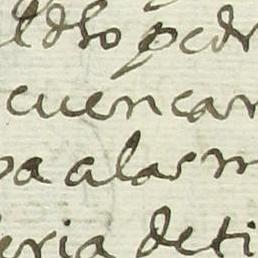 ldho pedr
cuencan
pa alas m
eria deti